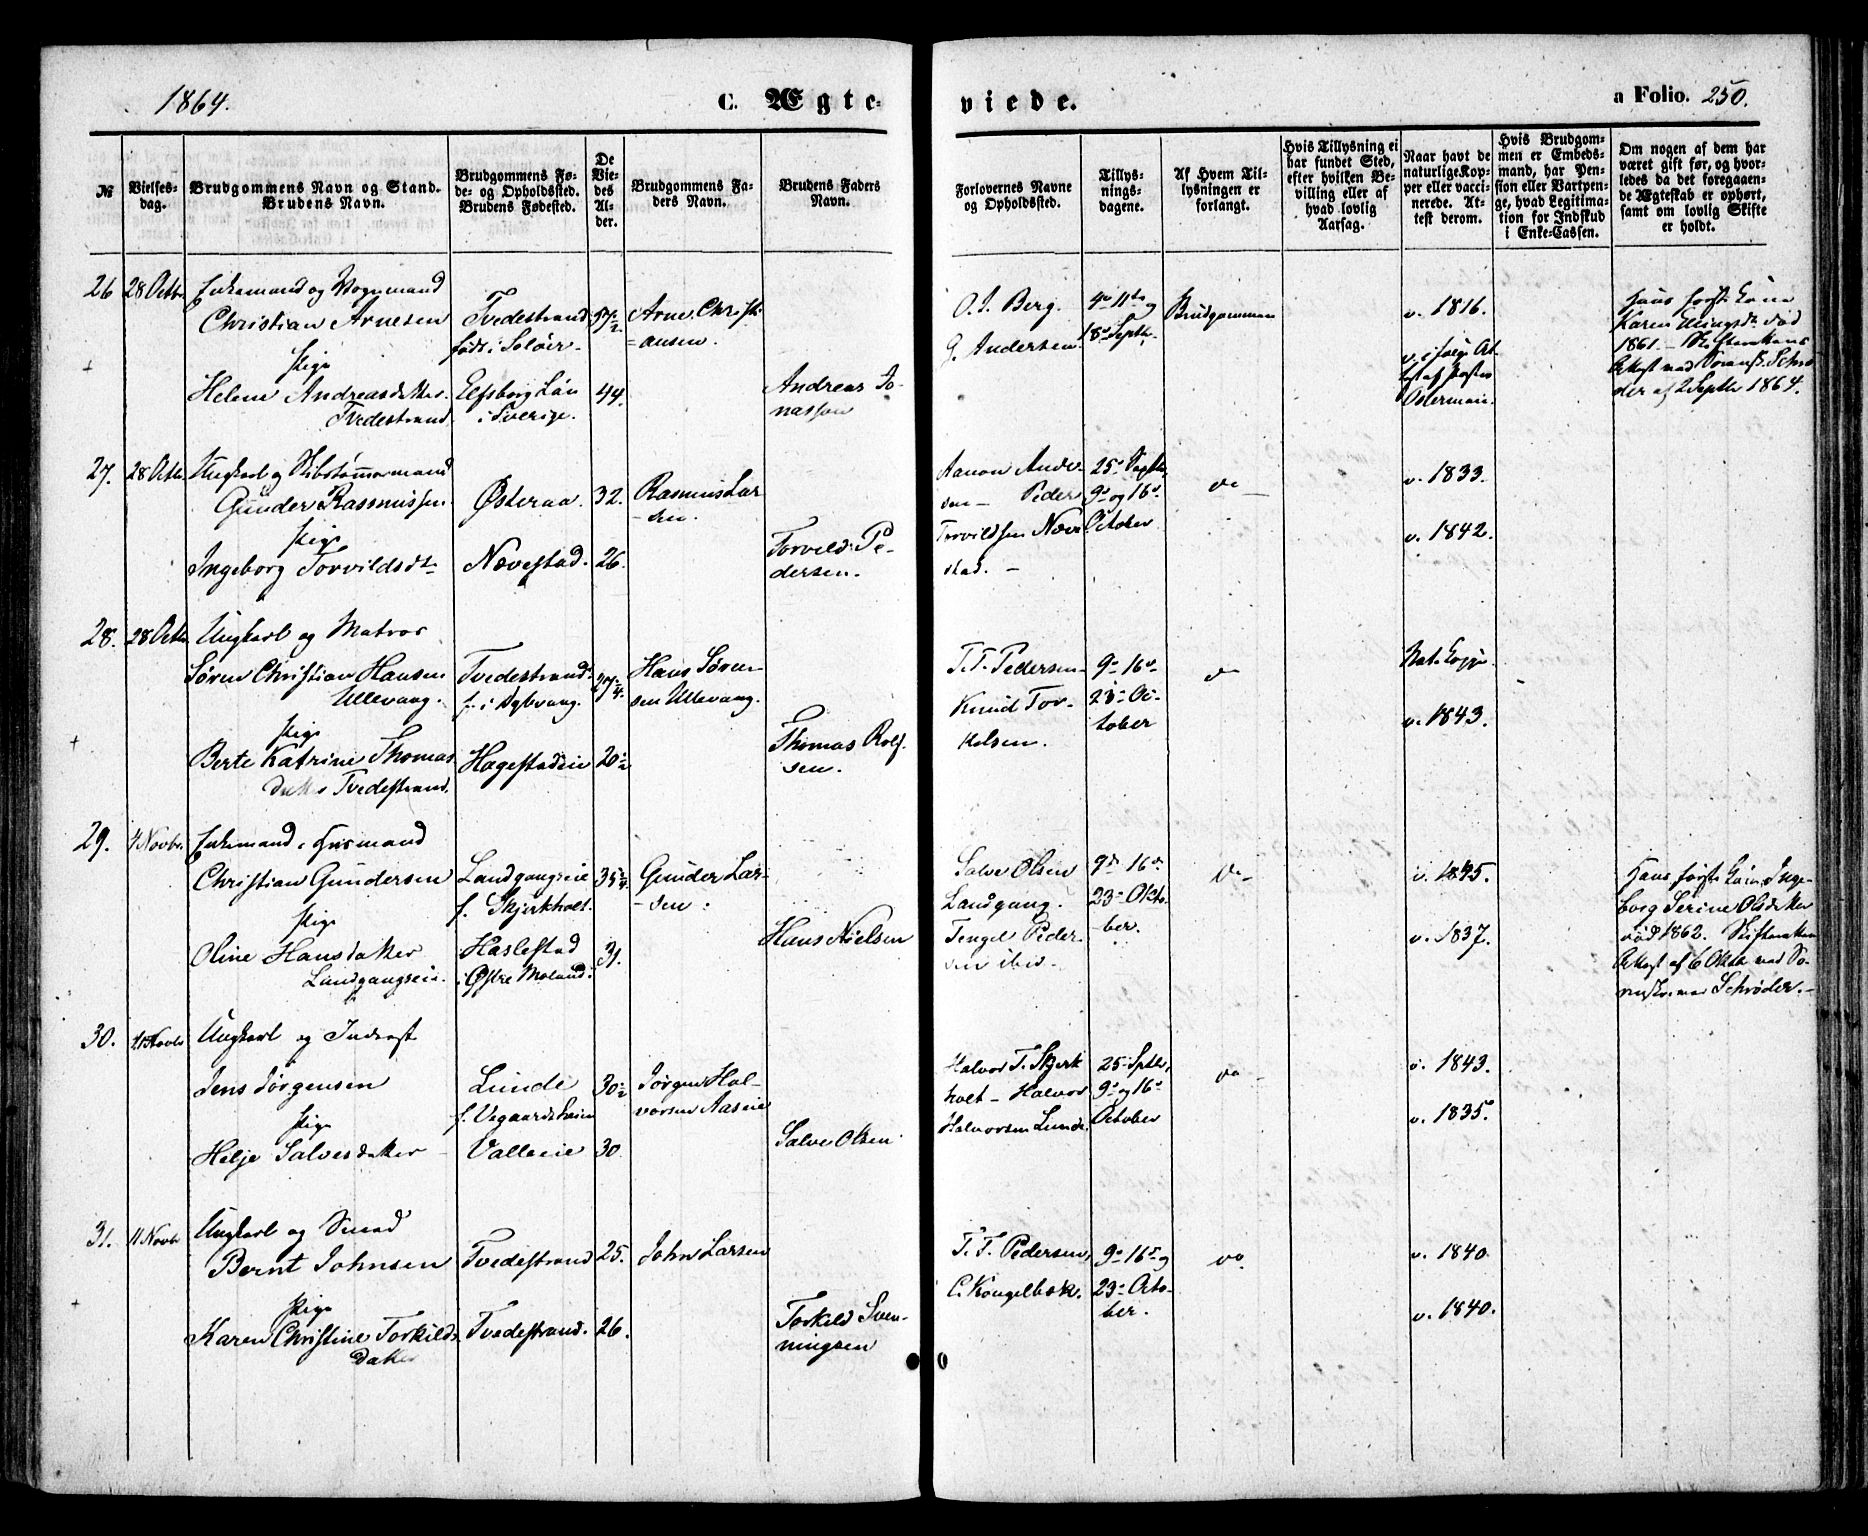 1864.
C. Ægte-
viede.
a Folio. 250.
№
Vielses-
dag.
Brudgommens Navn og Stand.
Brudens Navn.
Brudgommens Fø-
de- og Opholdssted.
Brudens Fødested.
De
Vie-
des
Al-
der.
Brudgommens Fa-
ders Navn.
Brudens Faders
Navn.
Forlovernes Navne
og Opholdssted.
Tillys-
nings-
dagene.
Af Hvem Til-
lysningen er
forlangt.
Hvis Tillysning ei
har fundet Sted,
efter hvilken Be-
villing eller af
hvad lovlig
Aarsag.
Naar havt de
naturlige Kop-
per eller vacci-
nerede. At-
test derom.
Hvis Brudgom-
men er Embeds-
mand, har Pen-
sion eller Vartpen-
ge, hvad Legitima-
tion for Indskud
i Enke-Cassen.
Om nogen af dem har
været gift før, og hvor-
ledes da det foregaaen-
de Ægteskab er ophørt,
samt om lovlig Skifte
er holdt.
26
28 Octbr
Enkemand og Vognmand
Christian Arnesen
Pige
Helene Andreasdatter
Tvedestrand
Tvedestrand
født i Soløer
Elfsborg Län
i Sverige.
57½
44.
Arne Christi-
ansen.
Andreas Jo-
nasson
O. J. Berg.
G. Andersen
4de 11te og
18de Septbr
Brudgommen
v. 1816.
v. i følge At-
test af Pastor
Osterman.
Hans første Kone
Karen død
1861.
Schrø-
der af 2 Septbr 1864.
27.
28 Octbr
Ungkarl og Skibstømmermand
Gunder Rasmussen
Pige
Ingeborg Torvildsdtr
Østeraa.
Nævestad.
32.
26.
Rasmus Lar-
sen.
Torvild Pe-
dersen.
Aanon Ander-
sen - Peder
Torvildsen Næve-
stad.
25de Septbr,
9de og 16de
October
do
v. 1833.
v. 1842.
28.
28 Octbr
Ungkarl og Matros
Søren Christian Hansen
Ullevang.
Pige
Berte Katrine Thomas-
datter Tvedestrand.
Tvedestrand
f. i Dybvaag.
Hagestadeie
27¼
20½
Hans Søren-
sen Ullevang.
Thomas Rolf-
sen.
T. F. Pedersen
Knud Tor-
kelsen.
9de 16de
23de Oc-
tober
do
Nat. Kopper
v. 1843.
29.
4 Novbr.
Enkemand, Husmand
Christian Gundersen
Pige
Oline Hansdatter
Landgangseie.
Landgangseie
f. Skjerkholt.
Haslestad
i Østre Moland.
35¾
31.
Gunder Lar-
sen.
Hans Nielsen
Salve Olsen
Landgang.
Tengel Peder-
sen ibid.
9de 16de
23de Octo-
ber.
Do
v. 1845.
v. 1837.
Hans første Kone Inge-
borg Serine Olsdatter
død 1862. Skifterettens
Attest af 6 Octbr ved So-
renskriver Schrøder.
30.
11 Novbr
Ungkarl og Inderst
Jens Jørgensen
Pige
Helje Salvesdatter
Lunde
f. Vegaardsheien
Valleeie
30½
30.
Jørgen Hal-
vorsen Aaseie
Salve Olsen
Halvor T. Skjerk-
holt - Halvor
Halvorsen Lunde.
25de Septbr,
9de og 16de
October
do
v. 1843.
v. 1835.
31.
11 Novbr
Ungkarl og Smed
Bernt Johnsen
Pige
Karen Christine Torkilds-
datter
Tvedestrand
Tvedestrand.
25.
26.
John Larsen
Torkild Sven-
ningsen
T. F. Pedersen,
C. Kongelbæk.
9de 16de og
23de Octo-
ber.
do
v. 1840.
v. 1840.